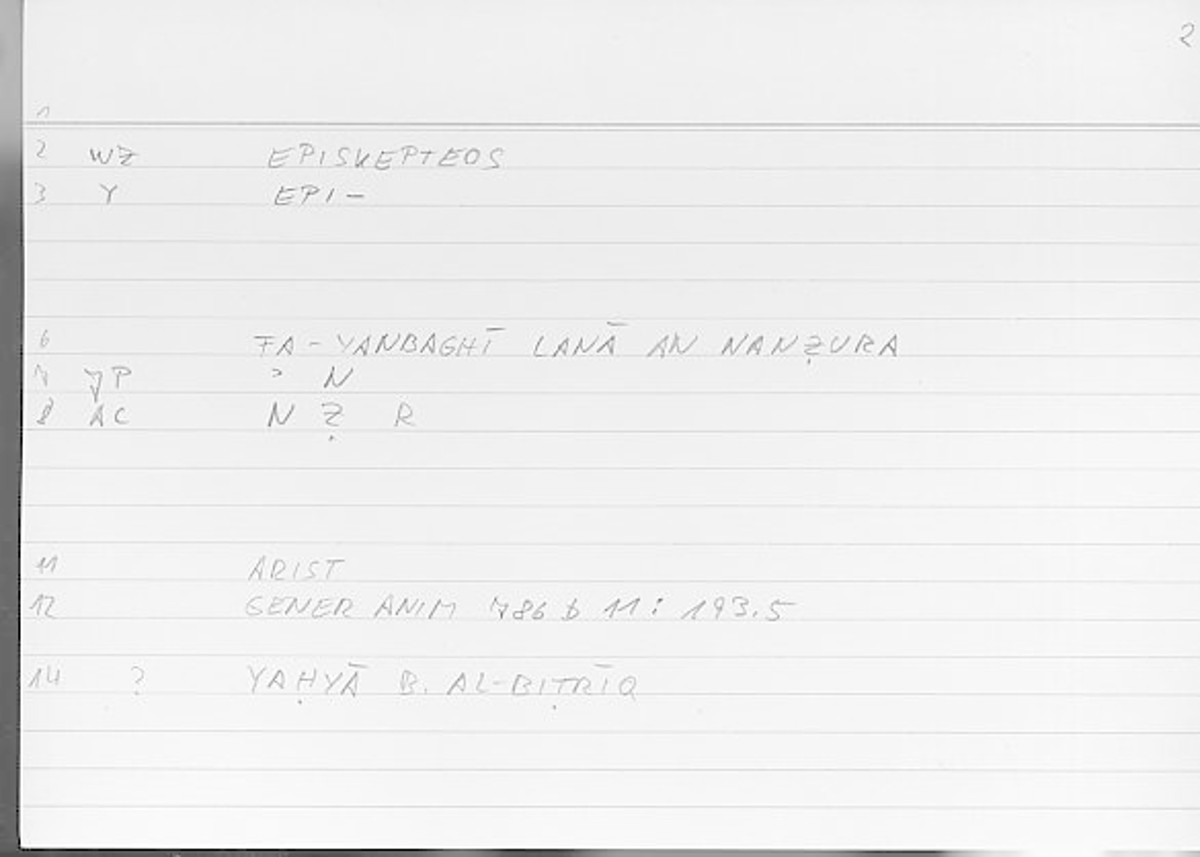 2
1
2 WZ EPISKEPTEOS
3 Y EPI-
6 FA-YANBAGHĪ LANĀ AN NANẒURA
7 JP ʾ N
8 AC N Ẓ R
11 ARIST
12 GENER ANIM 786 b 11 : 193.5
14 ? YAḤYĀ B. AL-BIṬRĪQ